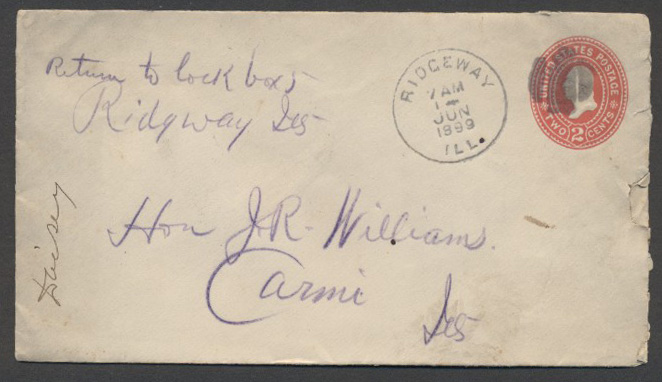 Return to lock box 5
Ridgway Ills
RIDGEWAY
7 AM
JUN
1899
ILL.
UNITED STATES POSTAGE
TWO 2 CENTS
Hon J.R. Williams.
Carmi
Ills